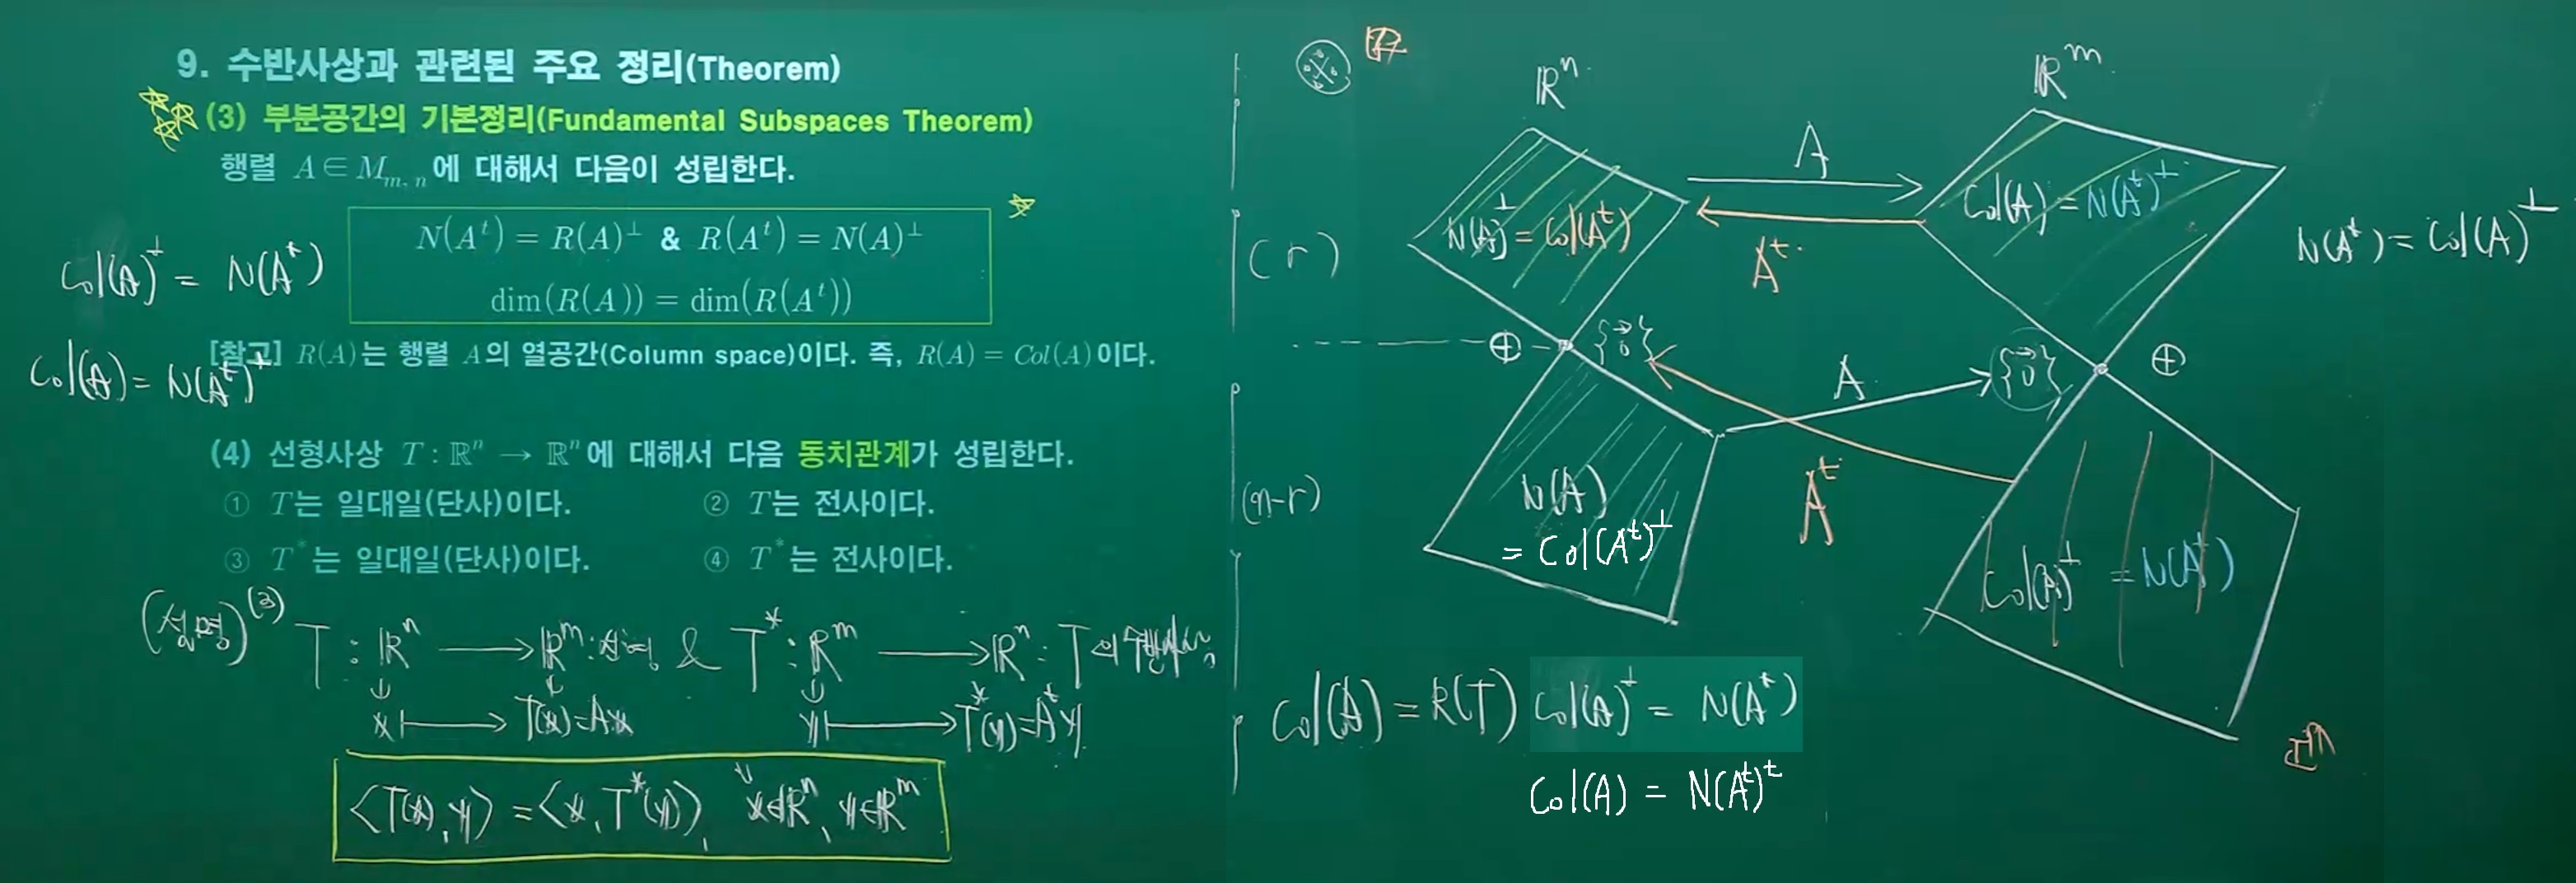 9. 수반사상과 관련된 주요 정리(Theorem)
(3) 부분공간의 기본정리(Fundamental Subspaces Theorem)
행렬 A ∈ M_{m, n}에 대해서 다음이 성립한다.
N(A^t) = R(A)^⊥ & R(A^t) = N(A)^⊥
dim(R(A)) = dim(R(A^t))
Col(A)^⊥ = N(A^t)
[참고] R(A)는 행렬 A의 열공간(Column space)이다. 즉, R(A) = Col(A)이다.
Col(A) = N(A^t)^⊥
(4) 선형사상 T : ℝ^n → ℝ^n에 대해서 다음 동치관계가 성립한다.
① T는 일대일(단사)이다. ② T는 전사이다.
③ T^*는 일대일(단사)이다. ④ T^*는 전사이다.
(설명) (3) T : ℝ^n → ℝ^m : 선형 & T^* : ℝ^m → ℝ^n : T의
x ↦ T(x) = Ax y ↦ T^*(y) = A^t y
⟨T(x), y⟩ = ⟨x, T^*(y)⟩, ∀x∈ℝ^n, y∈ℝ^m
ℝ^n
ℝ^m
A
A^t
N(A)^⊥ = Col(A^t)
Col(A) = N(A^t)^⊥
N(A^t) = Col(A)^⊥
(r)
⊕
{0⃗}
A
{0⃗}
⊕
(n-r)
N(A)
= Col(A^t)^⊥
A^t
Col(A)^⊥ = N(A^t)
Col(A) = R(T) Col(A)^⊥ = N(A^t)
Col(A) = N(A^t)^t